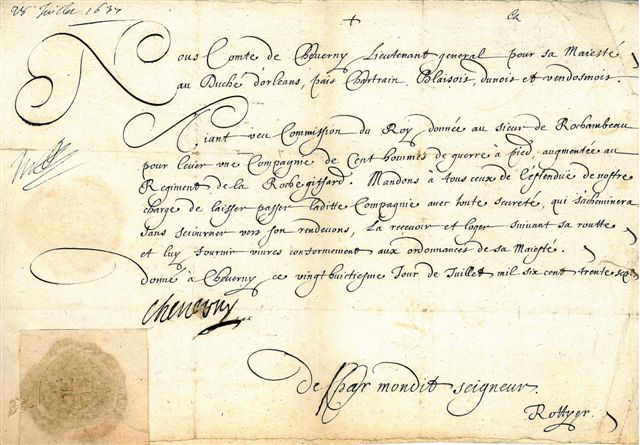 28 Juillet 1637
Nous Comte de Cheverny Lieutenant general pour sa Maiesté
au Duché d'orleans, païs Chartrain, Blaisois, dunois et vendosmois.
Aiant veu Commission du Roy donnée au sieur de Rochambeau
pour lever vne Compagnie de Cent hommes de guerre à pied, augmentée au
Regiment de la Rochegiffard. Mandons à tous ceux de l'estenduë de nostre
charge de laisser passer laditte Compagnie avec toute seureté, qui s'acheminera
sans seiourner vers son rendevous, La recevoir et loger suivant sa routte
et luy fournir vivres conformement aux ordonnances de sa Maiesté.
donné à Cheverny ce vingt huictiesme Jour de Juillet mil six cent trente sept
Cheverny
De Par mondit seigneur.
Rottyer